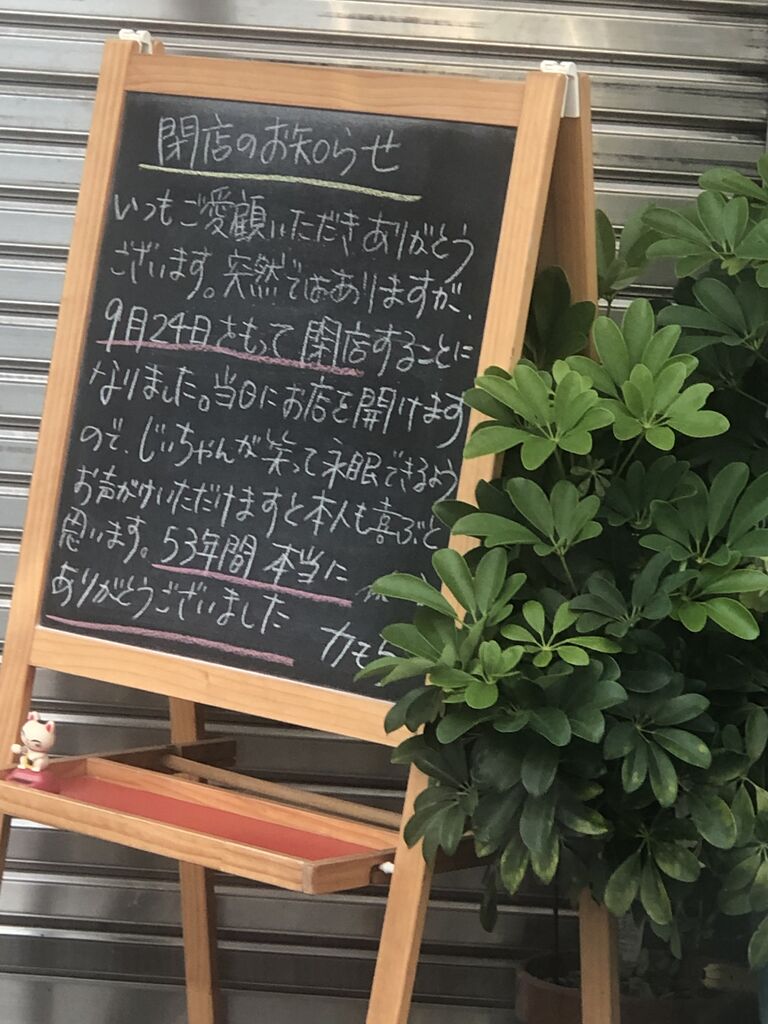 閉店のお知らせ
いつもご愛顧いただきありがとう
ございます。突然ではありますが、
9月24日をもって閉店することに
なりました。当日にお店を開けます
ので、じいちゃんが笑って永眠できるよう
お声がけいただけますと本人も喜ぶと
思います。53年間本当に
ありがとうございました
カモ